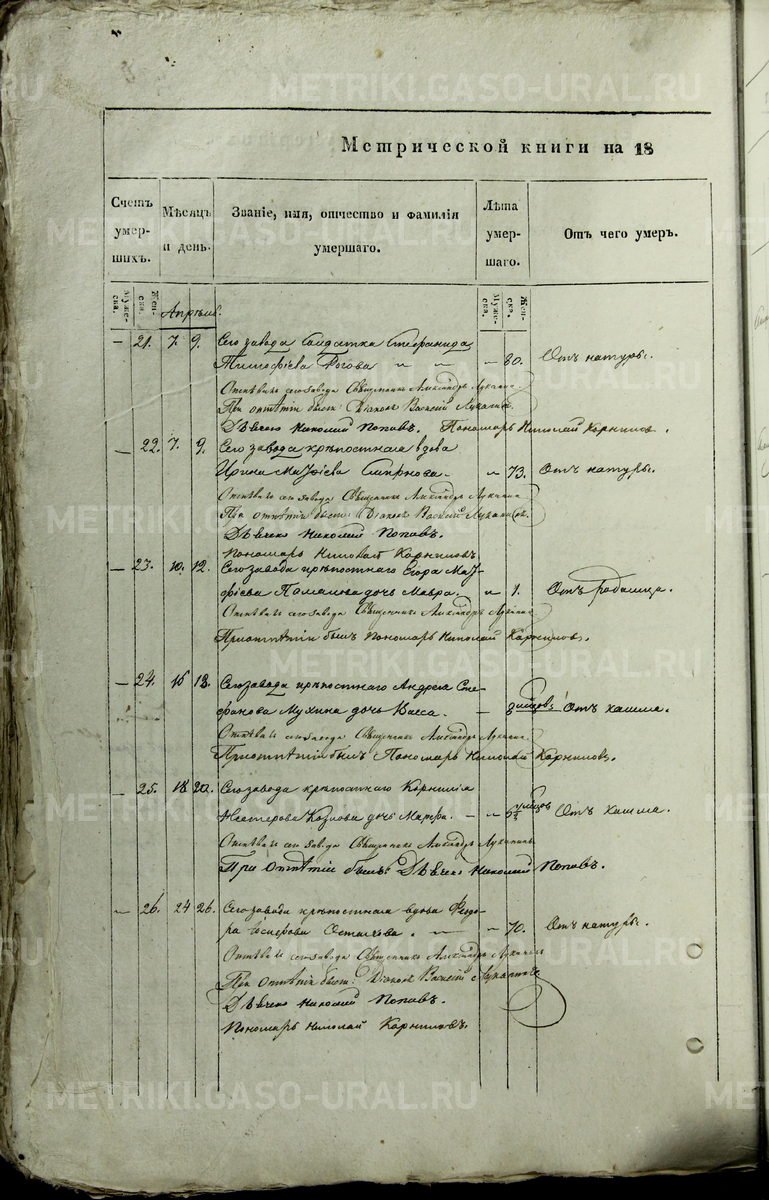 METRIKI.GASO-URAL.RU
Метрической книги на 18
Счетъ умершихъ.
Мѣсяцъ и день.
Званіе, имя, отчество и фамилія умершаго.
Лѣта умершаго.
Отъ чего умеръ.
Мужеска. Женска.
Мужеска. Женска.
Апрѣль.
— 21. 7. 9. Сего завода Солдатка Стефанида
Тимофѣева Рогова — 80. Отъ натуры.
Отпѣвалъ сего завода Священникъ Александръ
При отпѣтіи были: Діаконъ Василій
Дьячекъ Николай Поповъ. Пономарь Николай Корниловъ.
— 22. 7. 9. Сего завода крѣпостная вдова
Ирина — 73. Отъ натуры.
Отпѣвалъ сего завода Священникъ Александръ
При отпѣтіи были: Діаконъ Василій
Дьячекъ Николай Поповъ.
Пономарь Николай Корниловъ
— 23. 10. 12. Сего завода крѣпостнаго Егора
дочь Мавра. — 1. Отъ родимца.
Отпѣвалъ сего завода Священникъ Александръ
При отпѣтіи былъ Пономарь Николай Корниловъ.
— 24. 16 18. Сего завода крѣпостнаго Андрея Сте-
фанова Мухина дочь Васса. — Отъ кашля.
Отпѣвалъ сего завода Священникъ Александръ
При отпѣтіи былъ Пономарь Николай Корниловъ.
— 25. 18 20. Сего завода крѣпостнаго Корнилія
Нестерова Козлова дочь Марфа. — Отъ кашля.
Отпѣвалъ сего завода Священникъ Александръ
При отпѣтіи былъ: Дьячекъ Николай Поповъ.
— 26. 24 26. Сего завода крѣпостная вдова Ѳедо-
ра — 70. Отъ натуры.
Отпѣвалъ сего завода Священникъ Александръ
При отпѣтіи были: Діаконъ Василій
Дьячекъ Николай Поповъ.
Пономарь Николай Корниловъ.